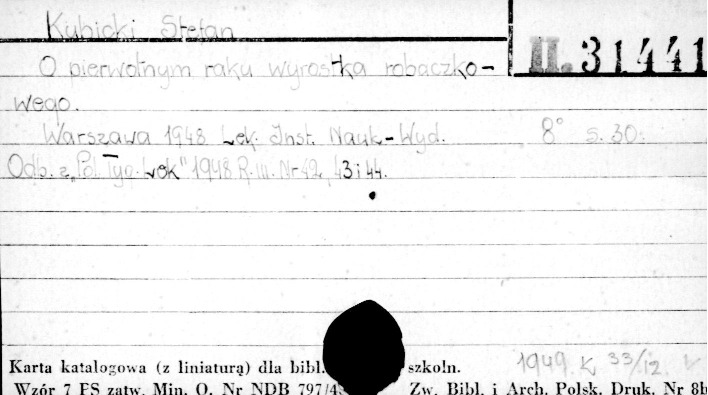 Kubicki Stefan
II. 31441
O pierwotnym raku wyrostka robaczko-
wego.
Warszawa 1948 Lek. Inst. Nauk-Wyd. 8° s. 30.
Odb. z „Pol. Tyg. Lek" 1948 R. III. Nr 42, 43 i 44.
1949. K 33/12.
Karta katalogowa (z liniaturą) dla bibl. szkoln.
Wzór 7 PS zatw. Min. O. Nr NDB 797/45 Zw. Bibl. i Arch. Polsk. Druk. Nr 8b